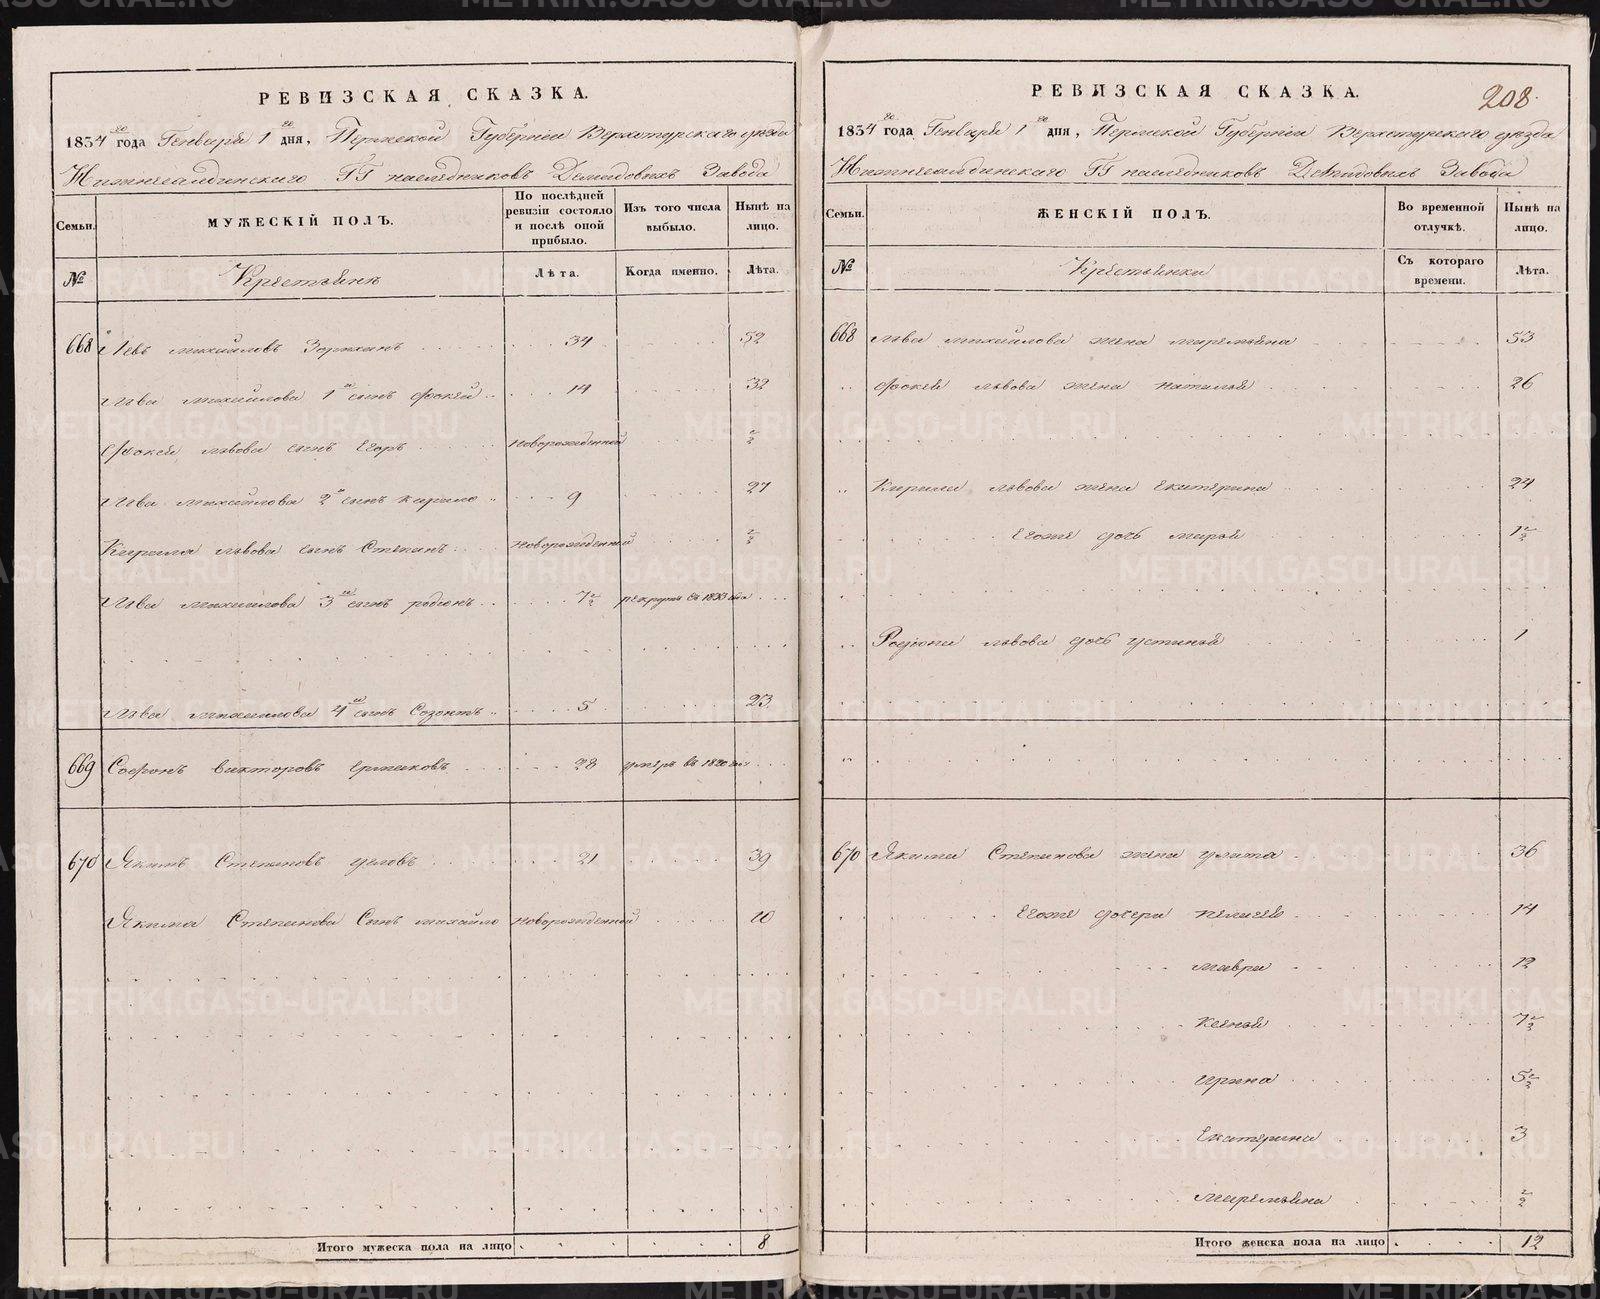 РЕВИЗСКАЯ СКАЗКА.
1834го года Генваря 1го дня, Пермской Губернии Верхотурского уезда
Нижнесалдинского ГГ наследниковъ Демидовыхъ Завода
Семьи.
МУЖЕСКІЙ ПОЛЪ.
По послѣдней ревизіи состояло и послѣ оной прибыло.
Изъ того числа выбыло.
Нынѣ на лицо.
№
Крестьяне
Лѣта.
Когда именно.
Лѣта.
668 Левъ михайловъ 34 52
Льва михайлова 1й сынъ Фокей 14 32
Фокея львова сынъ Егоръ новорожденной 1/2
Льва михайлова 2й сынъ кирило 9 27
Кирила львова сынъ Степанъ новорожденной 1/2
Льва михайлова 3й сынъ родионъ 7 1/2 рекрутъ въ 1833 года
Льва михайлова 4й сынъ Созонтъ 5 23
669 Софонъ викторовъ ермаковъ 28 умеръ въ 1820 году
670 Якимъ Степановъ 21 39
Якима Степанова Сынъ михайло новорожденной 10
Итого мужеска пола на лицо 8
РЕВИЗСКАЯ СКАЗКА.
208.
1834го года Генваря 1го дня, Пермской Губернии Верхотурского уезда
Нижнесалдинского ГГ наследниковъ Демидовыхъ Завода
Семьи.
ЖЕНСКІЙ ПОЛЪ.
Во временной отлучкѣ.
Нынѣ на лицо.
№
Крестьянки
Съ котораго времени.
Лѣта.
668 Льва михайлова жена маремьяна 53
Фокея львова жена наталья 26
Кирила львова жена Екатерина 24
Егоже дочь марья 1 1/2
Родиона львова дочь устинья 1
670 Якима Степанова жена улита 36
Егоже дочери пелагея 14
мавра 12
ксенья 7 1/2
ирина 5 1/2
Екатерина 3
маремьяна 1/2
Итого женска пола на лицо 12
METRIKI.GASO-URAL.RU